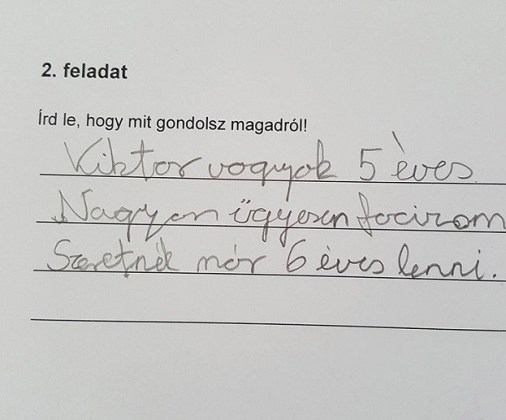 2. feladat
Írd le, hogy mit gondolsz magadról!
Viktor vagyok 5 éves.
Nagyon ügyesen focizom
Szeretnék már 6 éves lenni.